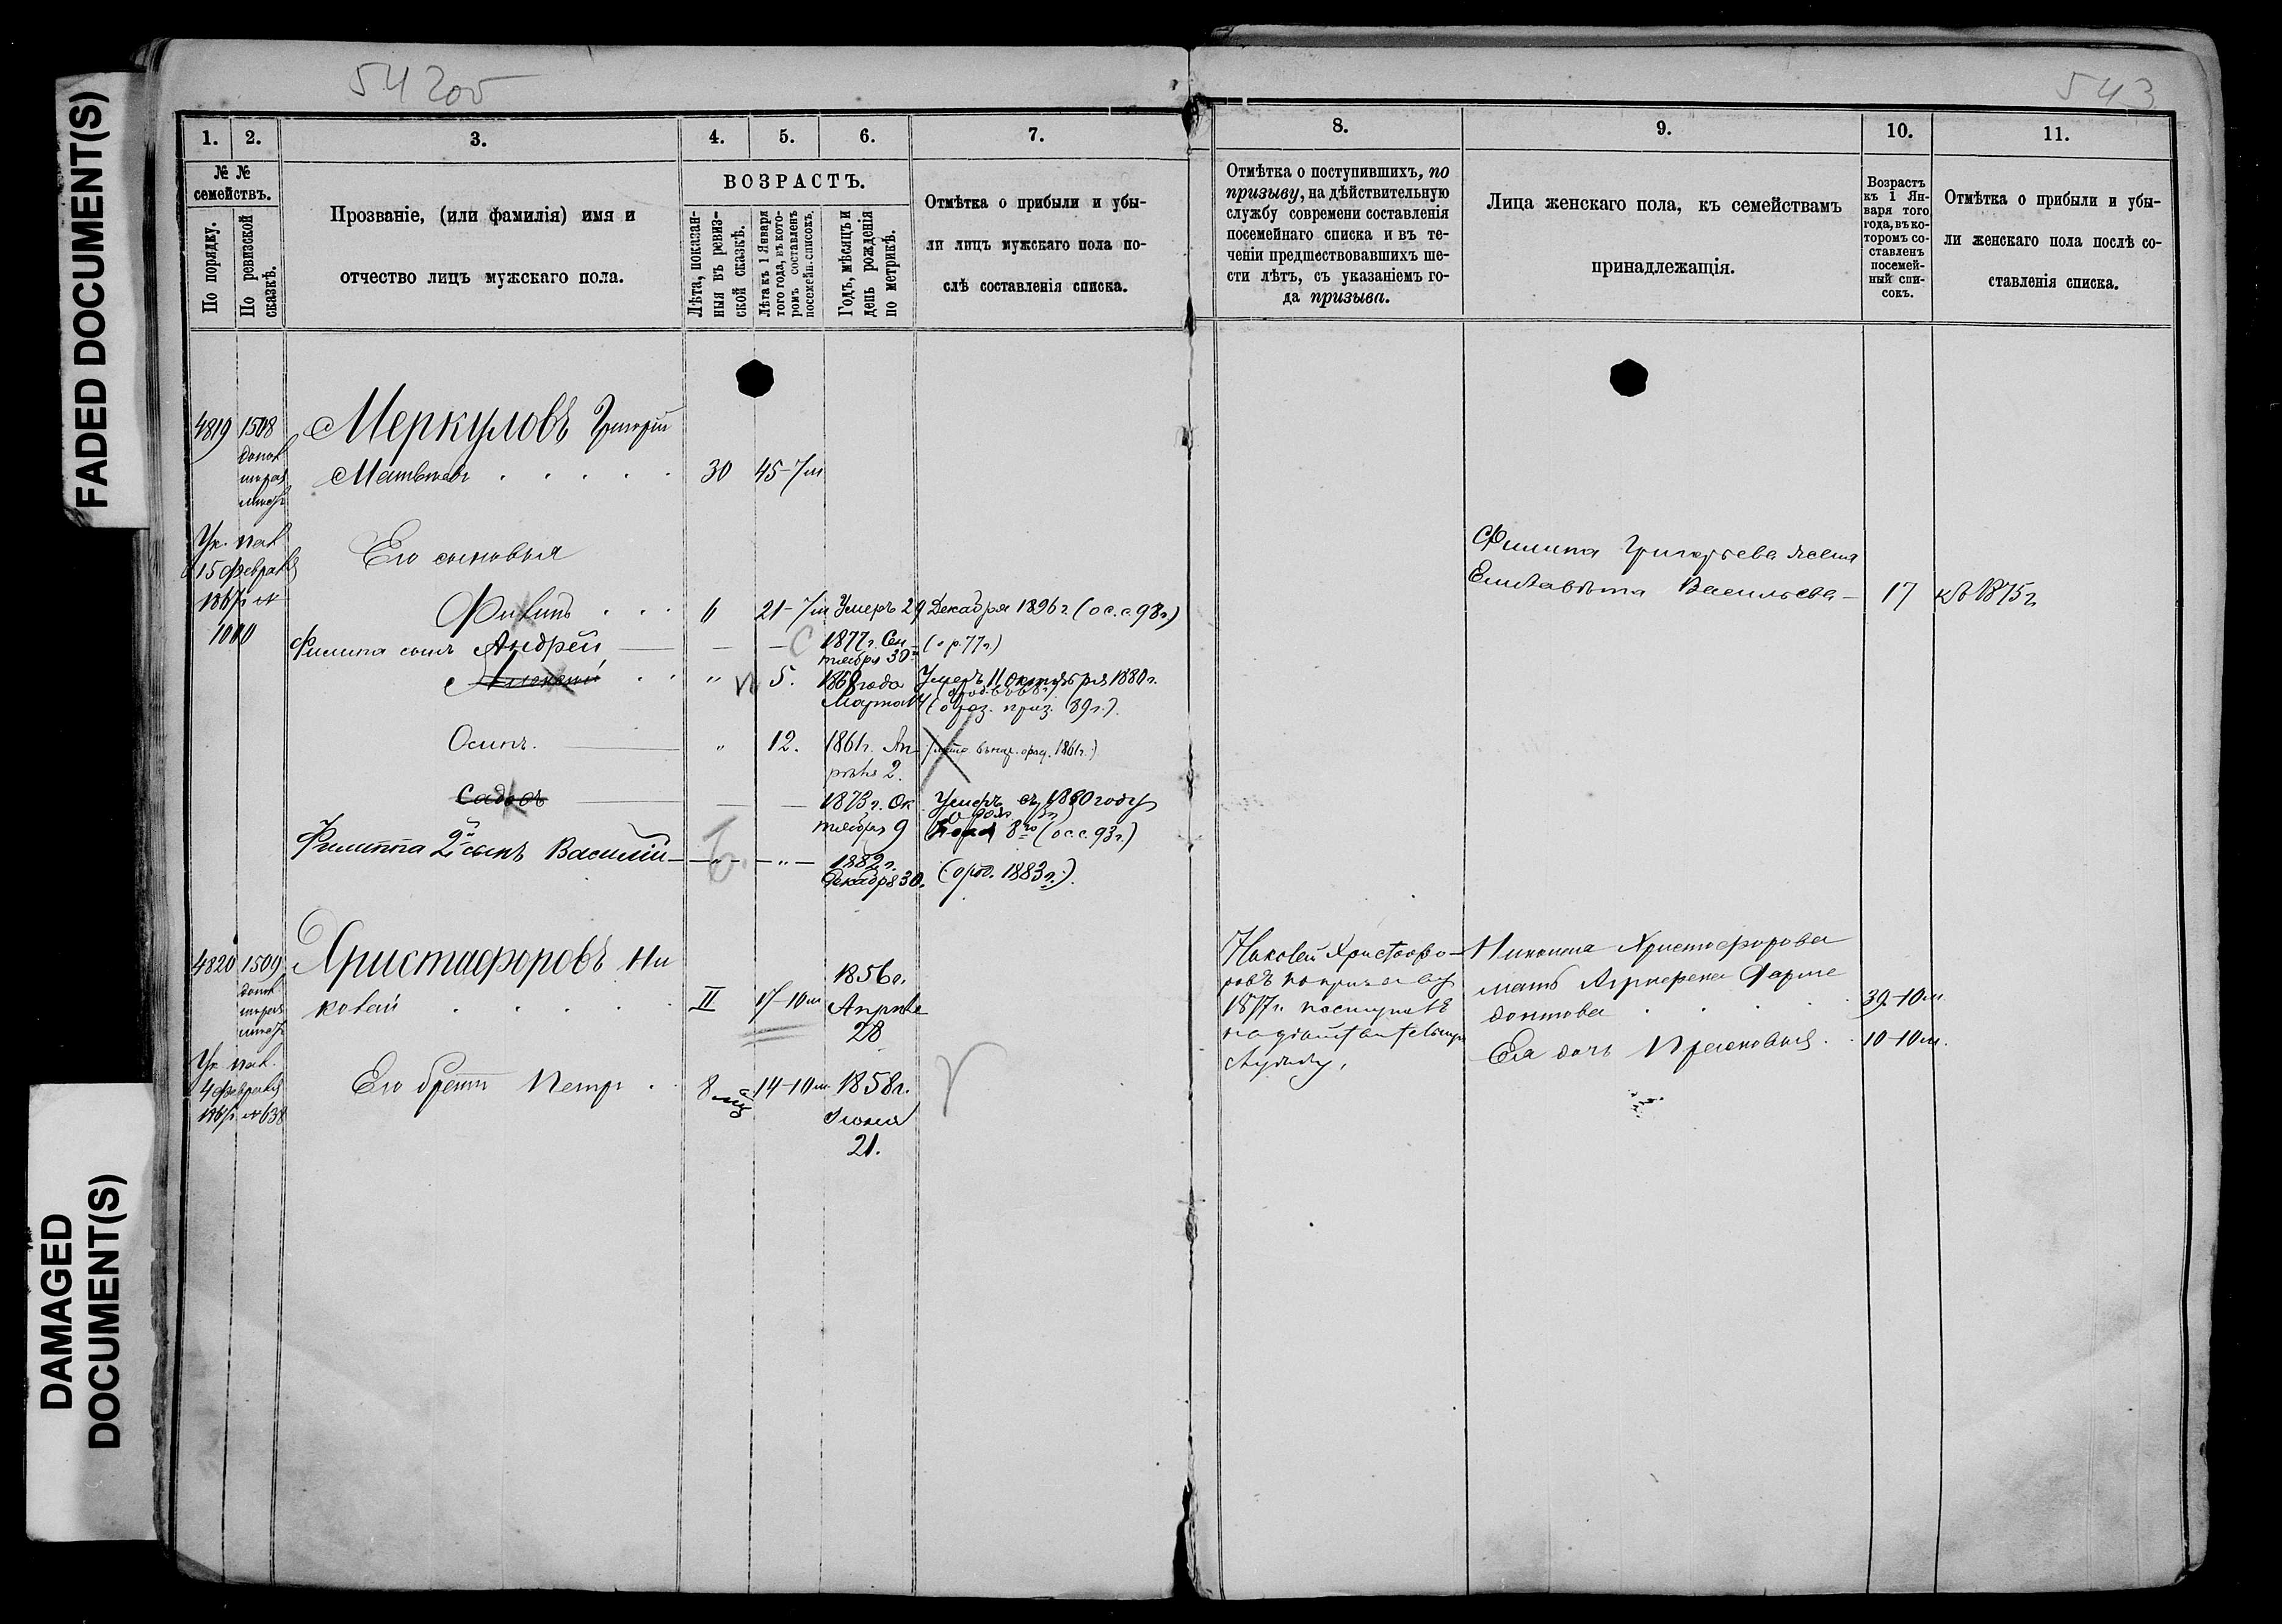 FADED DOCUMENT(S)
DAMAGED
DOCUMENT(S)
543
1. 2. 3. 4. 5. 6. 7.
№ №
семействъ.
По порядку.
По ревизской
сказкѣ.
Прозваніе, (или фамилія) имя и
отчество лицъ мужскаго пола.
ВОЗРАСТЪ.
Лѣта, показан-
ныя въ ревиз-
ской сказкѣ.
Лѣта къ 1 Января
того года, въ кото-
ромъ составленъ
посемейн. списокъ.
Годъ, мѣсяцъ и
день рожденія
по метрикѣ.
Отмѣтка о прибыли и убы-
ли лицъ мужскаго пола по-
слѣ составленія списка.
4819 1508 Меркуловъ Григорій
Матвѣевъ 30 45-7м
Ук. пал.
15 февраля
Его сыновья
Филипъ 6 21-7м Умеръ 29 Декабря 1896 г. (о с. с. 98 г.)
1010
Филипа сынъ Андрей 1877 г. Сен
тября 30 (о р. 77 г.)
Алексей " 5. 1868 года
Марта Умеръ 11 Октября 1880 г.
(о раз. приз. 89 г.)
Осипъ. " 12. 1861 г. Ап
рѣля 2.
1873 г. Ок
тября 9 Умеръ въ 1880 году
(о с. с. 93 г.)
Филиппа 2й сынъ Василій " 1882 г.
Декабря 30. (о род. 1883 г.)
4820 1509 Христафоровъ Ни
колай II 17-10м 1856 г.
Апрѣля
28
Ук. пал.
4 февраля
№ 638
Его братъ Петръ 8 мц 14-10м 1858 г.
Іюня
21.
8. 9. 10. 11.
Отмѣтка о поступившихъ, по
призыву, на дѣйствительную
службу современи составленія
посемейнаго списка и въ те-
ченіи предшествовавшихъ ше-
сти лѣтъ, съ указаніемъ го-
да призыва.
Лица женскаго пола, къ семействамъ
принадлежащія.
Возрастъ
къ 1 Ян-
варя того
года, въ ко-
торомъ со-
ставленъ
посемей-
ный спи-
сокъ.
Отмѣтка о прибыли и убы-
ли женскаго пола послѣ со-
ставленія списка.
Филипа Григорьева жена
Елизавѣта Васильева 17 къ 1875 г.
Николай Христофо-
ровъ по призыву
1877 г. поступилъ
на дѣйствительную
службу.
Николая Христофорова
мать Агрифена
39-10м.
Ея дочь Прасковья 10-10м.